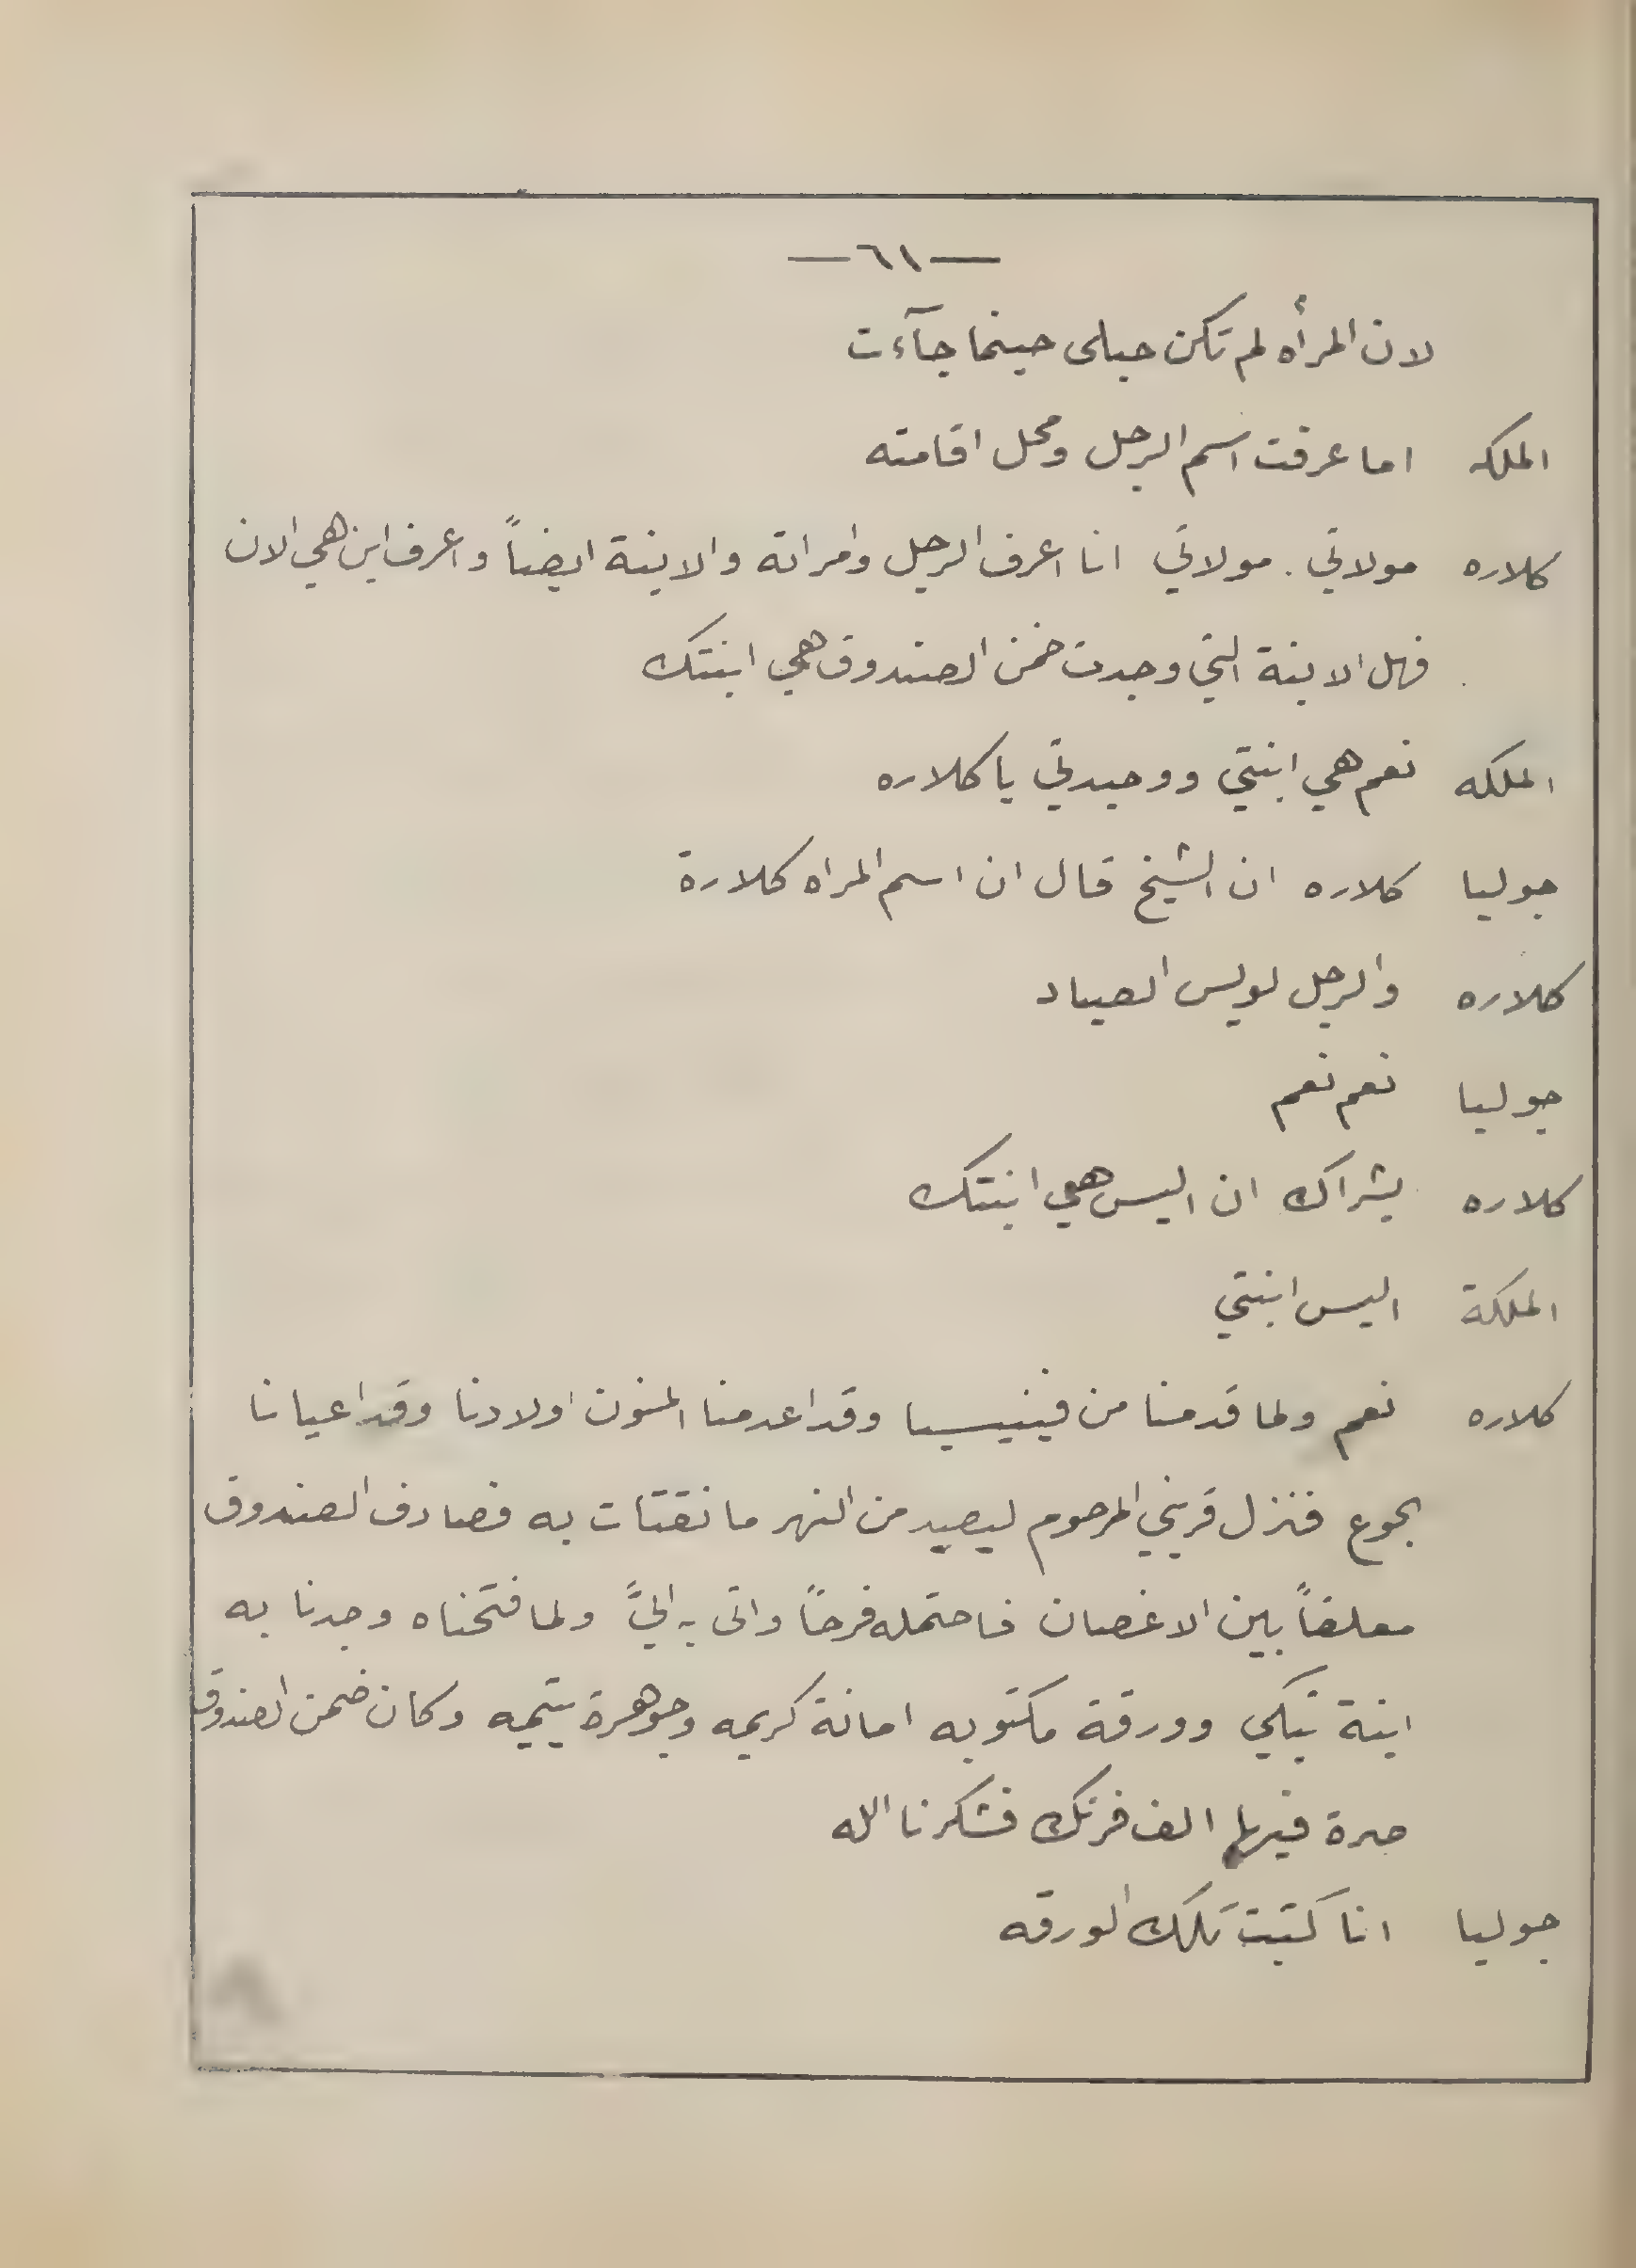 —٦١—
لان المرأه لم تكن حبلى حينما جآءت
الملكه اما عرفت اسم الرجل ومحل اقامته
كلاره مولاتي . مولاتي انا اعرف الرجل وامراته والابنة ايضاً واعرف اين هي الان
فهل الابنة التي وجدت ضمن الصندوق هي ابنتك
الملكه نعم هي ابنتي ووحيدتي يا كلاره
جوليا كلاره ان الشيخ قال ان اسم المراه كلارة
كلاره والرجل لويس الصياد
جوليا نعم نعم
كلاره بشراك ان اليس هي ابنتك
الملكة اليس ابنتي
كلاره نعم ولما قدمنا من فينيسيا وقد اعدمنا المنون اولادنا وقد اعيانا
الجوع فنزل قريني المرحوم ليصيد من النهر ما نقتات به فصادف الصندوق
معلقاً بين الاغصان فاحتمله فرحاً واتى به اليَّ ولما فتحناه وجدنا به
ابنة تبكي وورقة مكتوبه امانة كريمه وجوهرة يتيمه وكان ضمن الصندوق
صرة فيها الف فرنك فشكرنا الله
جوليا انا كتبت تلك الورقه